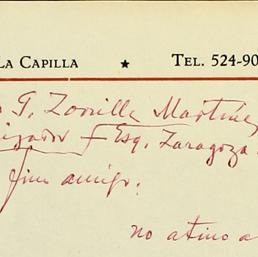 LA CAPILLA ★ TEL. 524-90
T. Zorrilla Martínez
Esq. Zaragoza
fino amigo:
no atino a